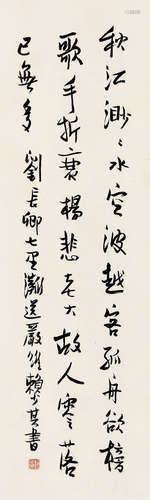 秋江渺渺水空波越客孤舟欲榜
歌手折衰楊悲老大故人零落
已無多 劉長卿七里灘送嚴維 賴少其書